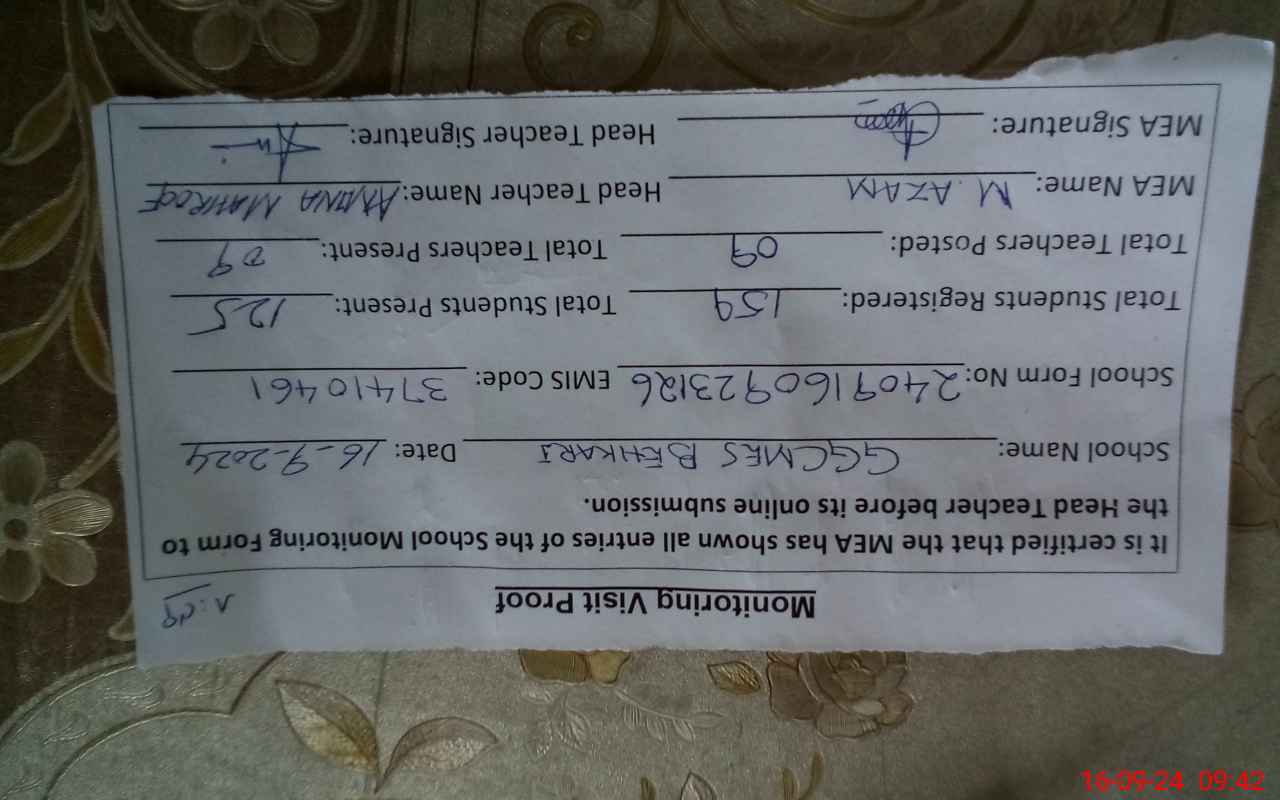 Monitoring Visit Proof
It is certified that the MEA has shown all entries of the School Monitoring Form to
the Head Teacher before its online submission.
School Name: GGCMES BEHKARI Date: 16-9-2024
School Form No: 2409160923126 EMIS Code: 37410461
Total Students Registered: 159 Total Students Present: 125
Total Teachers Posted: 09 Total Teachers Present: 09
MEA Name: M. AZAM Head Teacher Name: AMINA MAHROOF
MEA Signature: Head Teacher Signature:
16-09-24 09:42